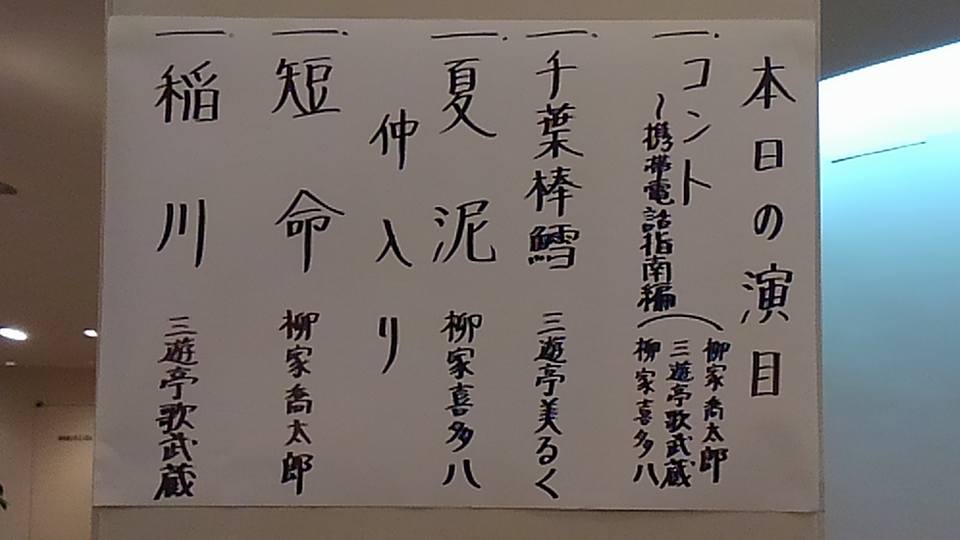 本日の演目
一.コント
〜携帯電話指南編
柳家喬太郎
三遊亭歌武蔵
柳家喜多八
一.千葉棒鱈 三遊亭美るく
一.夏泥 柳家喜多八
仲入り
一.短命 柳家喬太郎
一.稲川 三遊亭歌武蔵